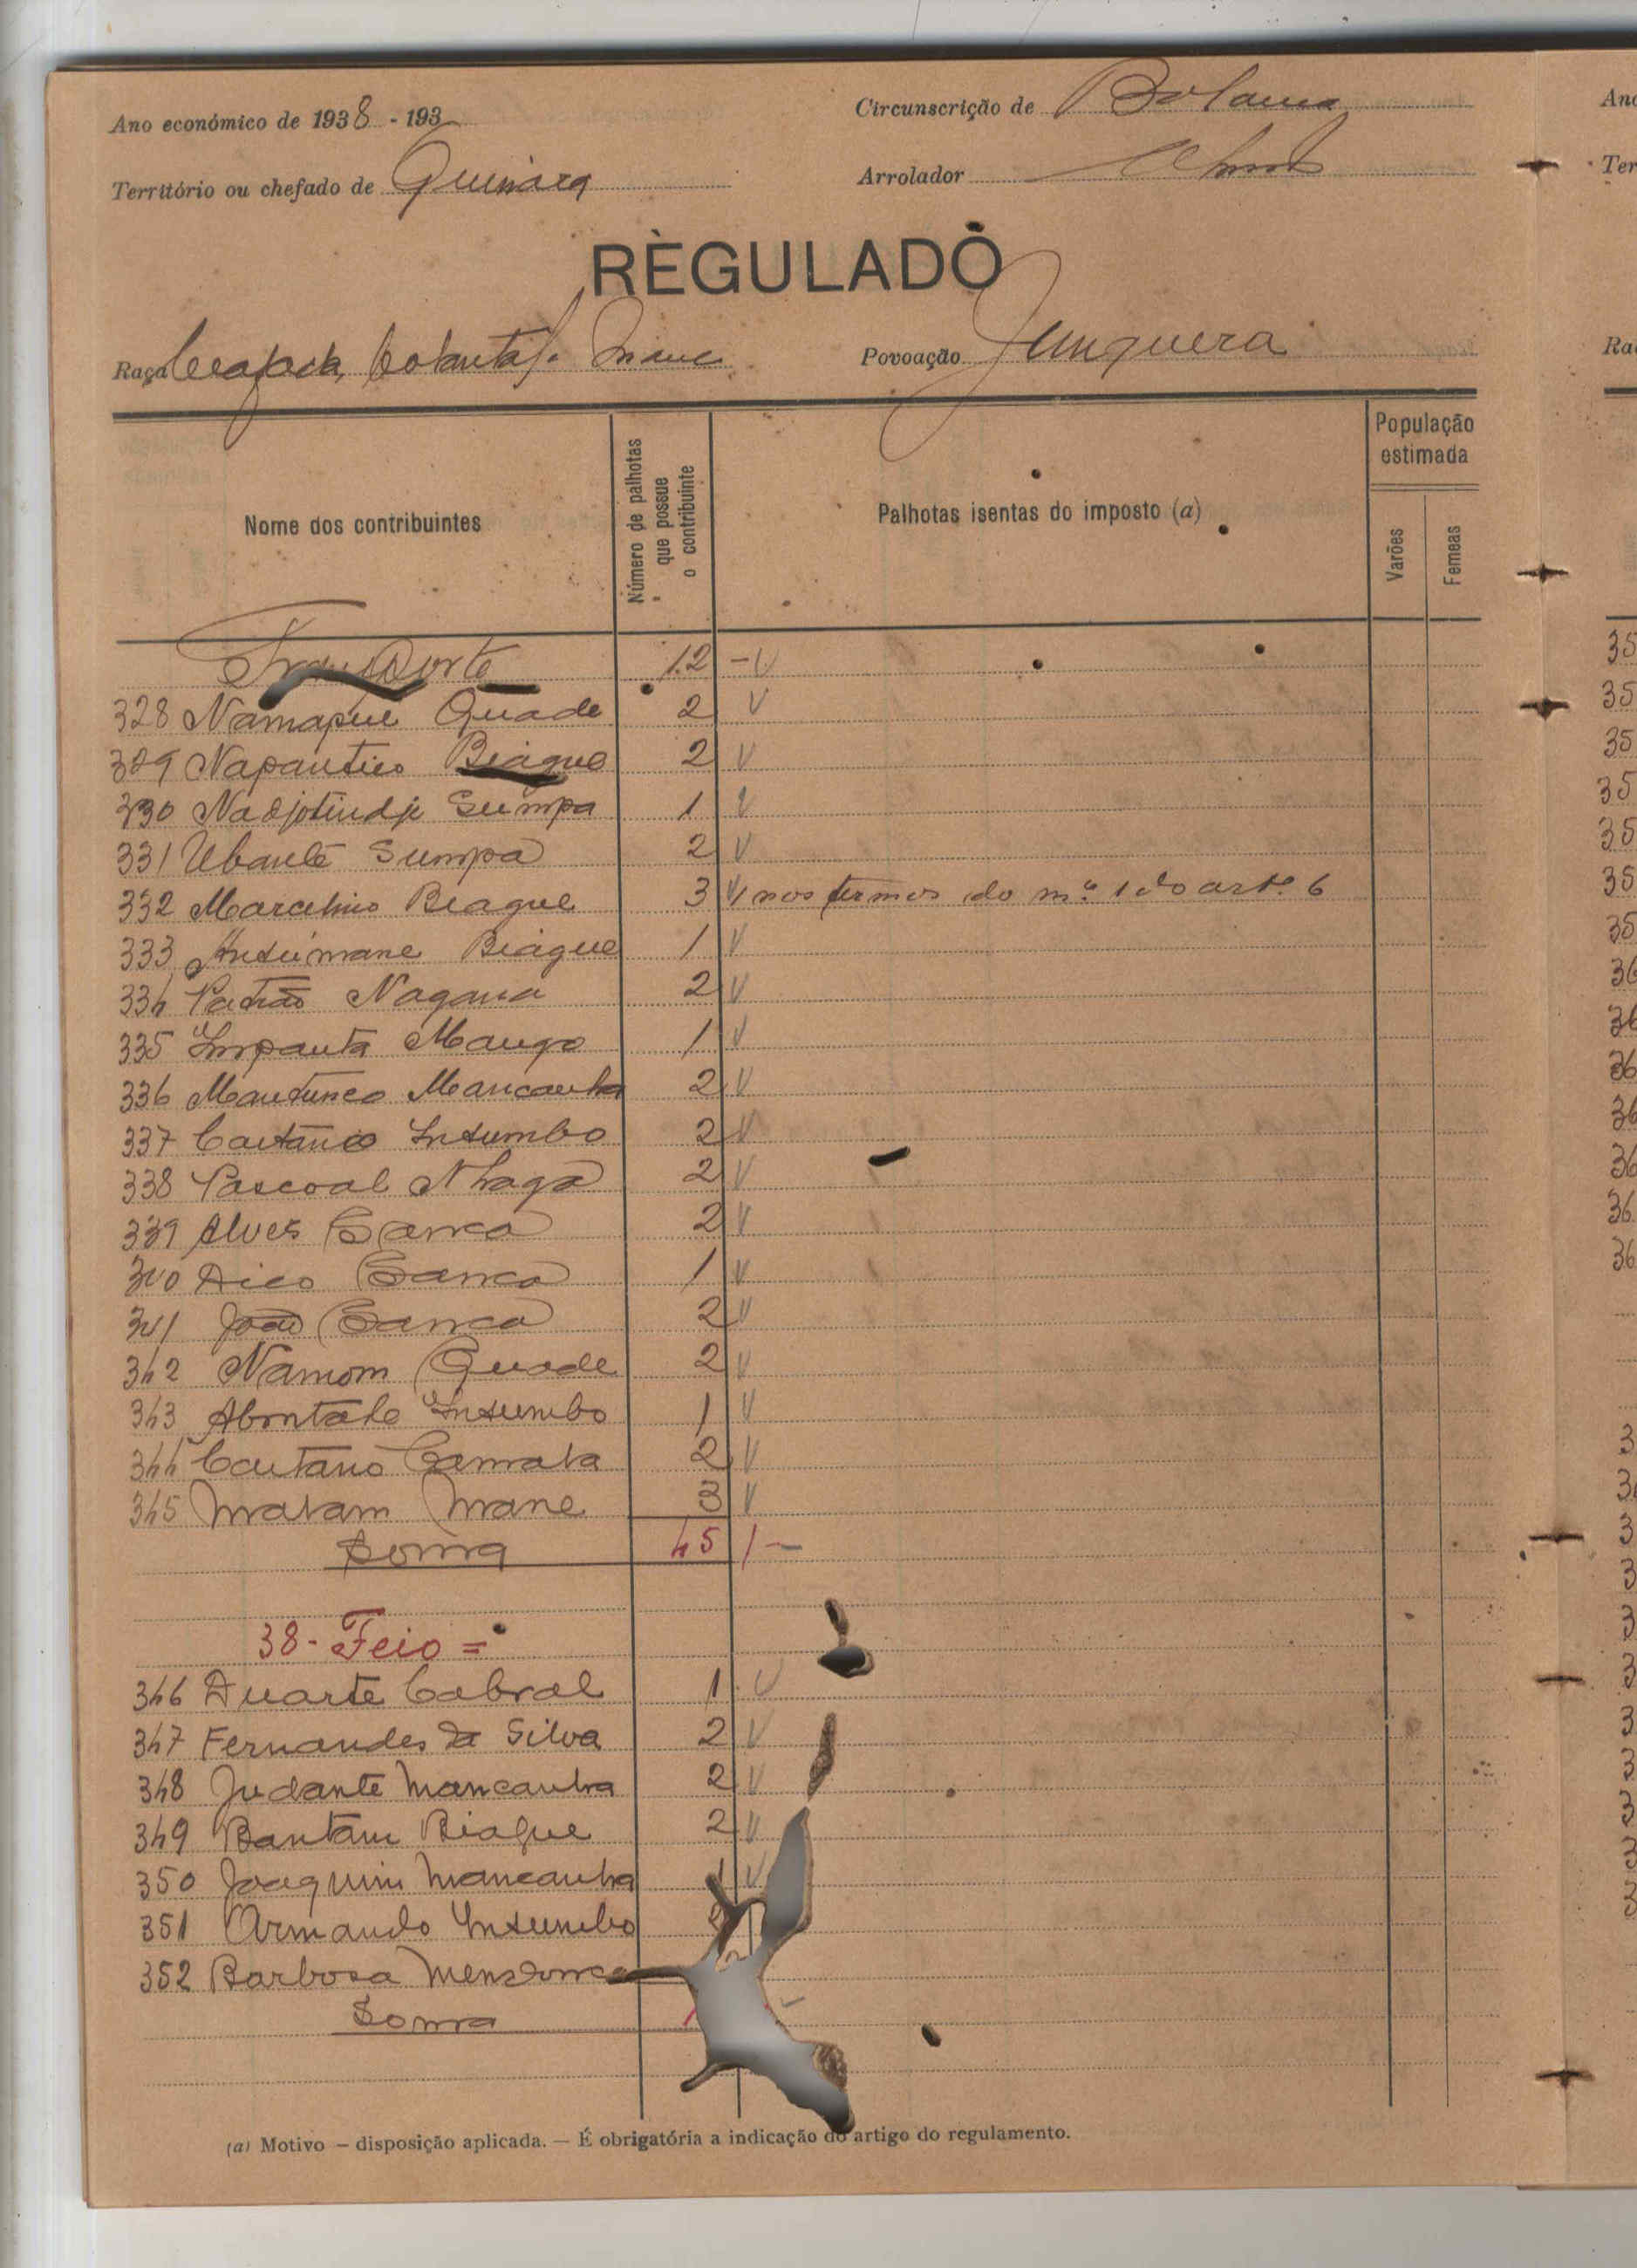 Ano económico de 1938 - 193
Circunscrição de Bolama
Território ou chefado de Quinára
Arrolador
RÈGULADO
Raça
Povoação Junquera
Nome dos contribuintes
Número de palhotas que possue o contribuinte
Palhotas isentas do imposto (a)
População estimada
Varões
Femeas
Transporte 12 - V
328 Namapue Quade 2 V
329 Napantico Biague 2 V
330 Nadjotindje Sumpa 1 V
331 Ubanté Sumpa 2 V
332 Marcelino Biague 3 V nos termos do n.º 1 do artº 6
333 Ansumane Biague 1 V
334 Patrão Nagana 2 V
335 Impanta Mango 1 V
336 Mantunco Mancanha 2 V
337 Caetano Insumbo 2 V
338 Pascoal Nhaga 2 V
339 Alves Sanca 2 V
340 Dico Sanca 1 V
341 João Sanca 2 V
342 Namom Quade 2 V
343 Abontale Insumbo 1 V
344 Caetano Camata 2 V
345 Malam Mane 3 V
Soma 45 / -
38 - Feio =
346 Duarte Cabral 1 V
347 Fernandes da Silva 2 V
348 Judante Mancanha 2 V
349 Bantam Biague 2 V
350 Joaquim Mancanha 1 V
351 Armando Insumbo 2
352 Barbosa Mendonça
Soma
(a) Motivo — disposição aplicada. — É obrigatória a indicação do artigo do regulamento.